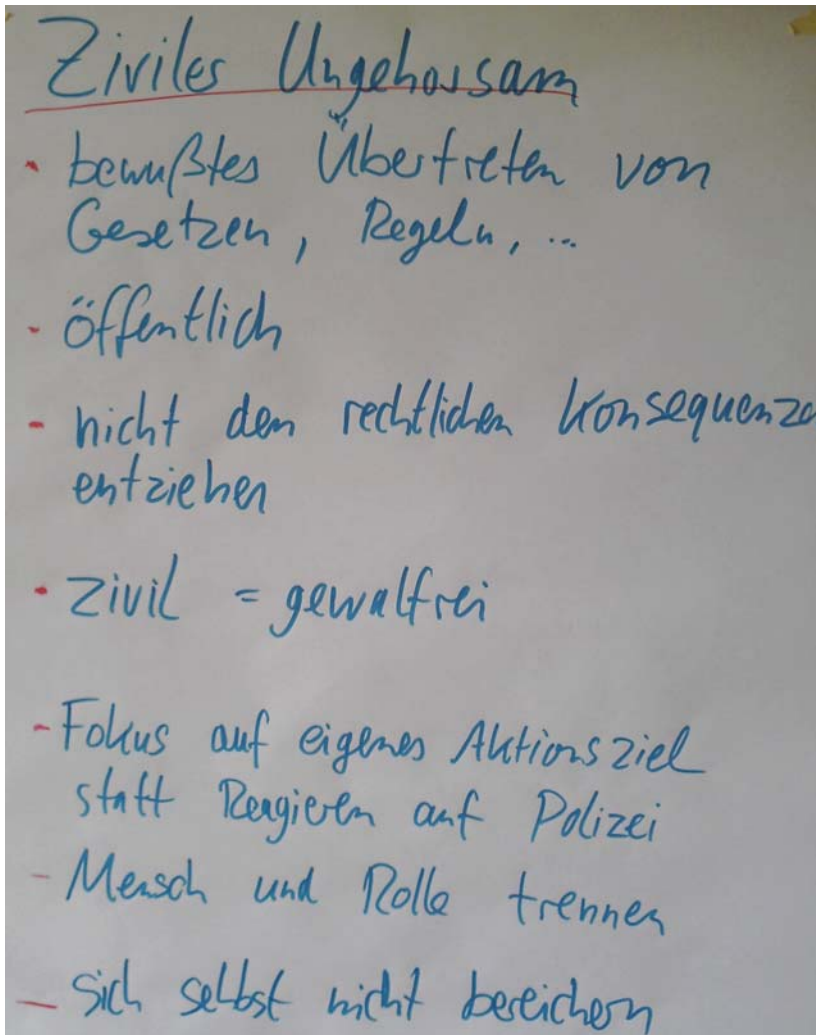 Ziviles Ungehorsam
· bewußtes Übertreten von
Gesetzen, Regeln, ...
- öffentlich
- nicht den rechtlichen Konsequenzen
entziehen
· zivil = gewaltfrei
- Fokus auf eigenes Aktionsziel
statt Reagieren auf Polizei
- Mensch und Rolle trennen
- sich selbst nicht bereichern